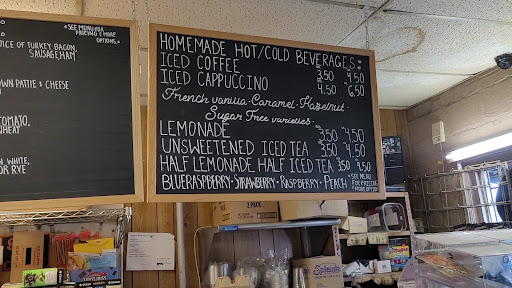 *SEE MENU FOR
PRICING & MORE
OPTIONS*
OICE OF TURKEY BACON,
SAUSAGE, HAM
OWN PATTIE & CHEESE
OMATO,
HEAT
N WHITE,
OR RYE
HOMEMADE HOT/COLD BEVERAGES*
ICED COFFEE 3.50 - 4.50
ICED CAPPUCCINO 4.50 - 6.50
French vanilla · Caramel · Hazelnut ·
Sugar Free varieties ·
LEMONADE 3.50 - 4.50
UNSWEETENED ICED TEA 3.50 - 4.50
HALF LEMONADE HALF ICED TEA 3.50 - 4.50
BLUERASPBERRY · STRAWBERRY · RASPBERRY · PEACH
*SEE MENU
FOR PRICING
& MORE OPTIONS